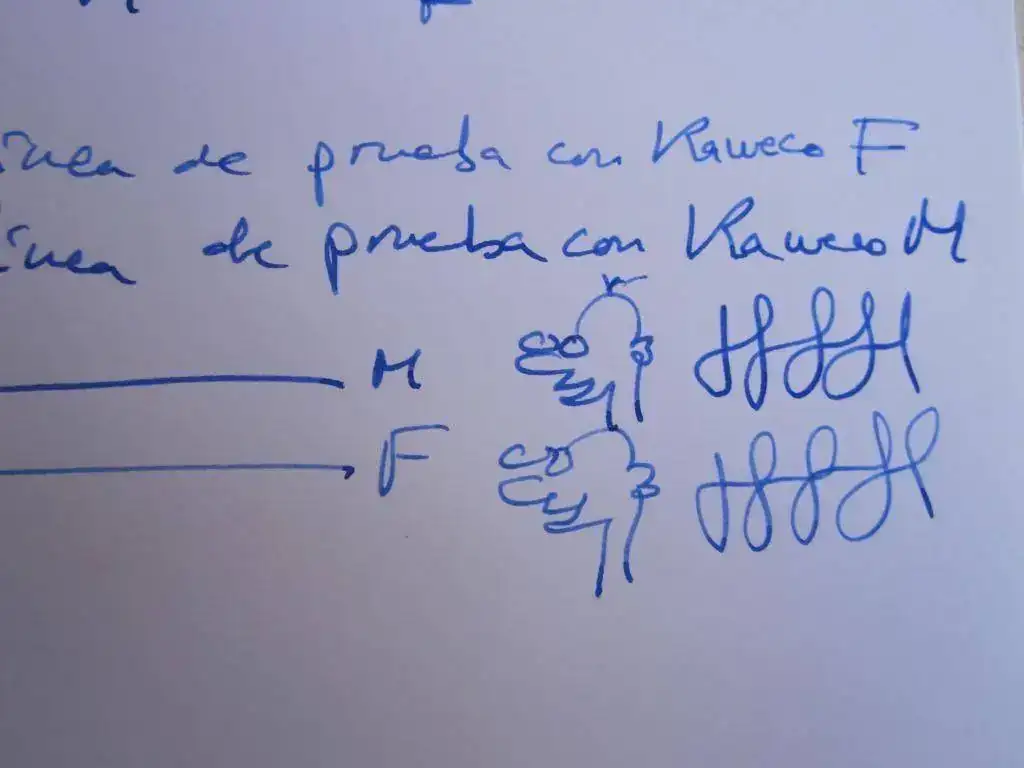 línea de prueba con Kaweco F
línea de prueba con Kaweco M
M
F